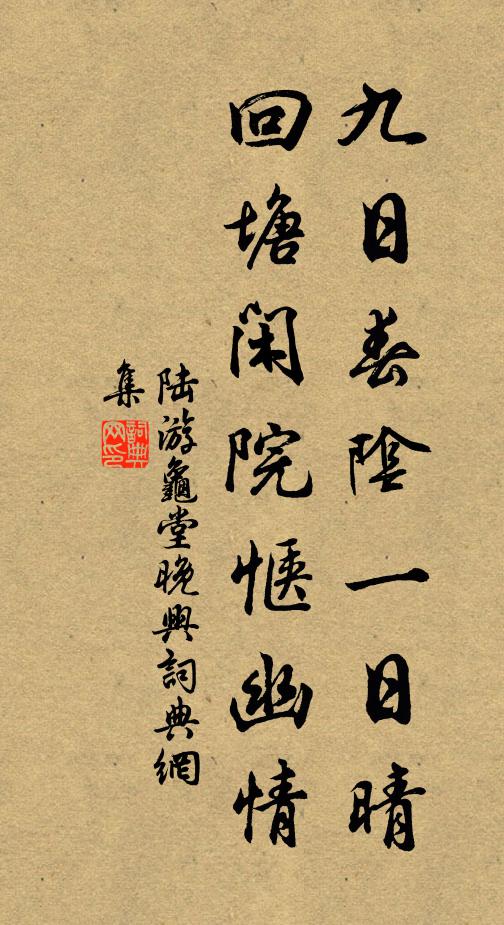 九日春陰一日晴
回塘閑院愜幽情
陸游龜堂晚興詞典網
集
詞典
网印